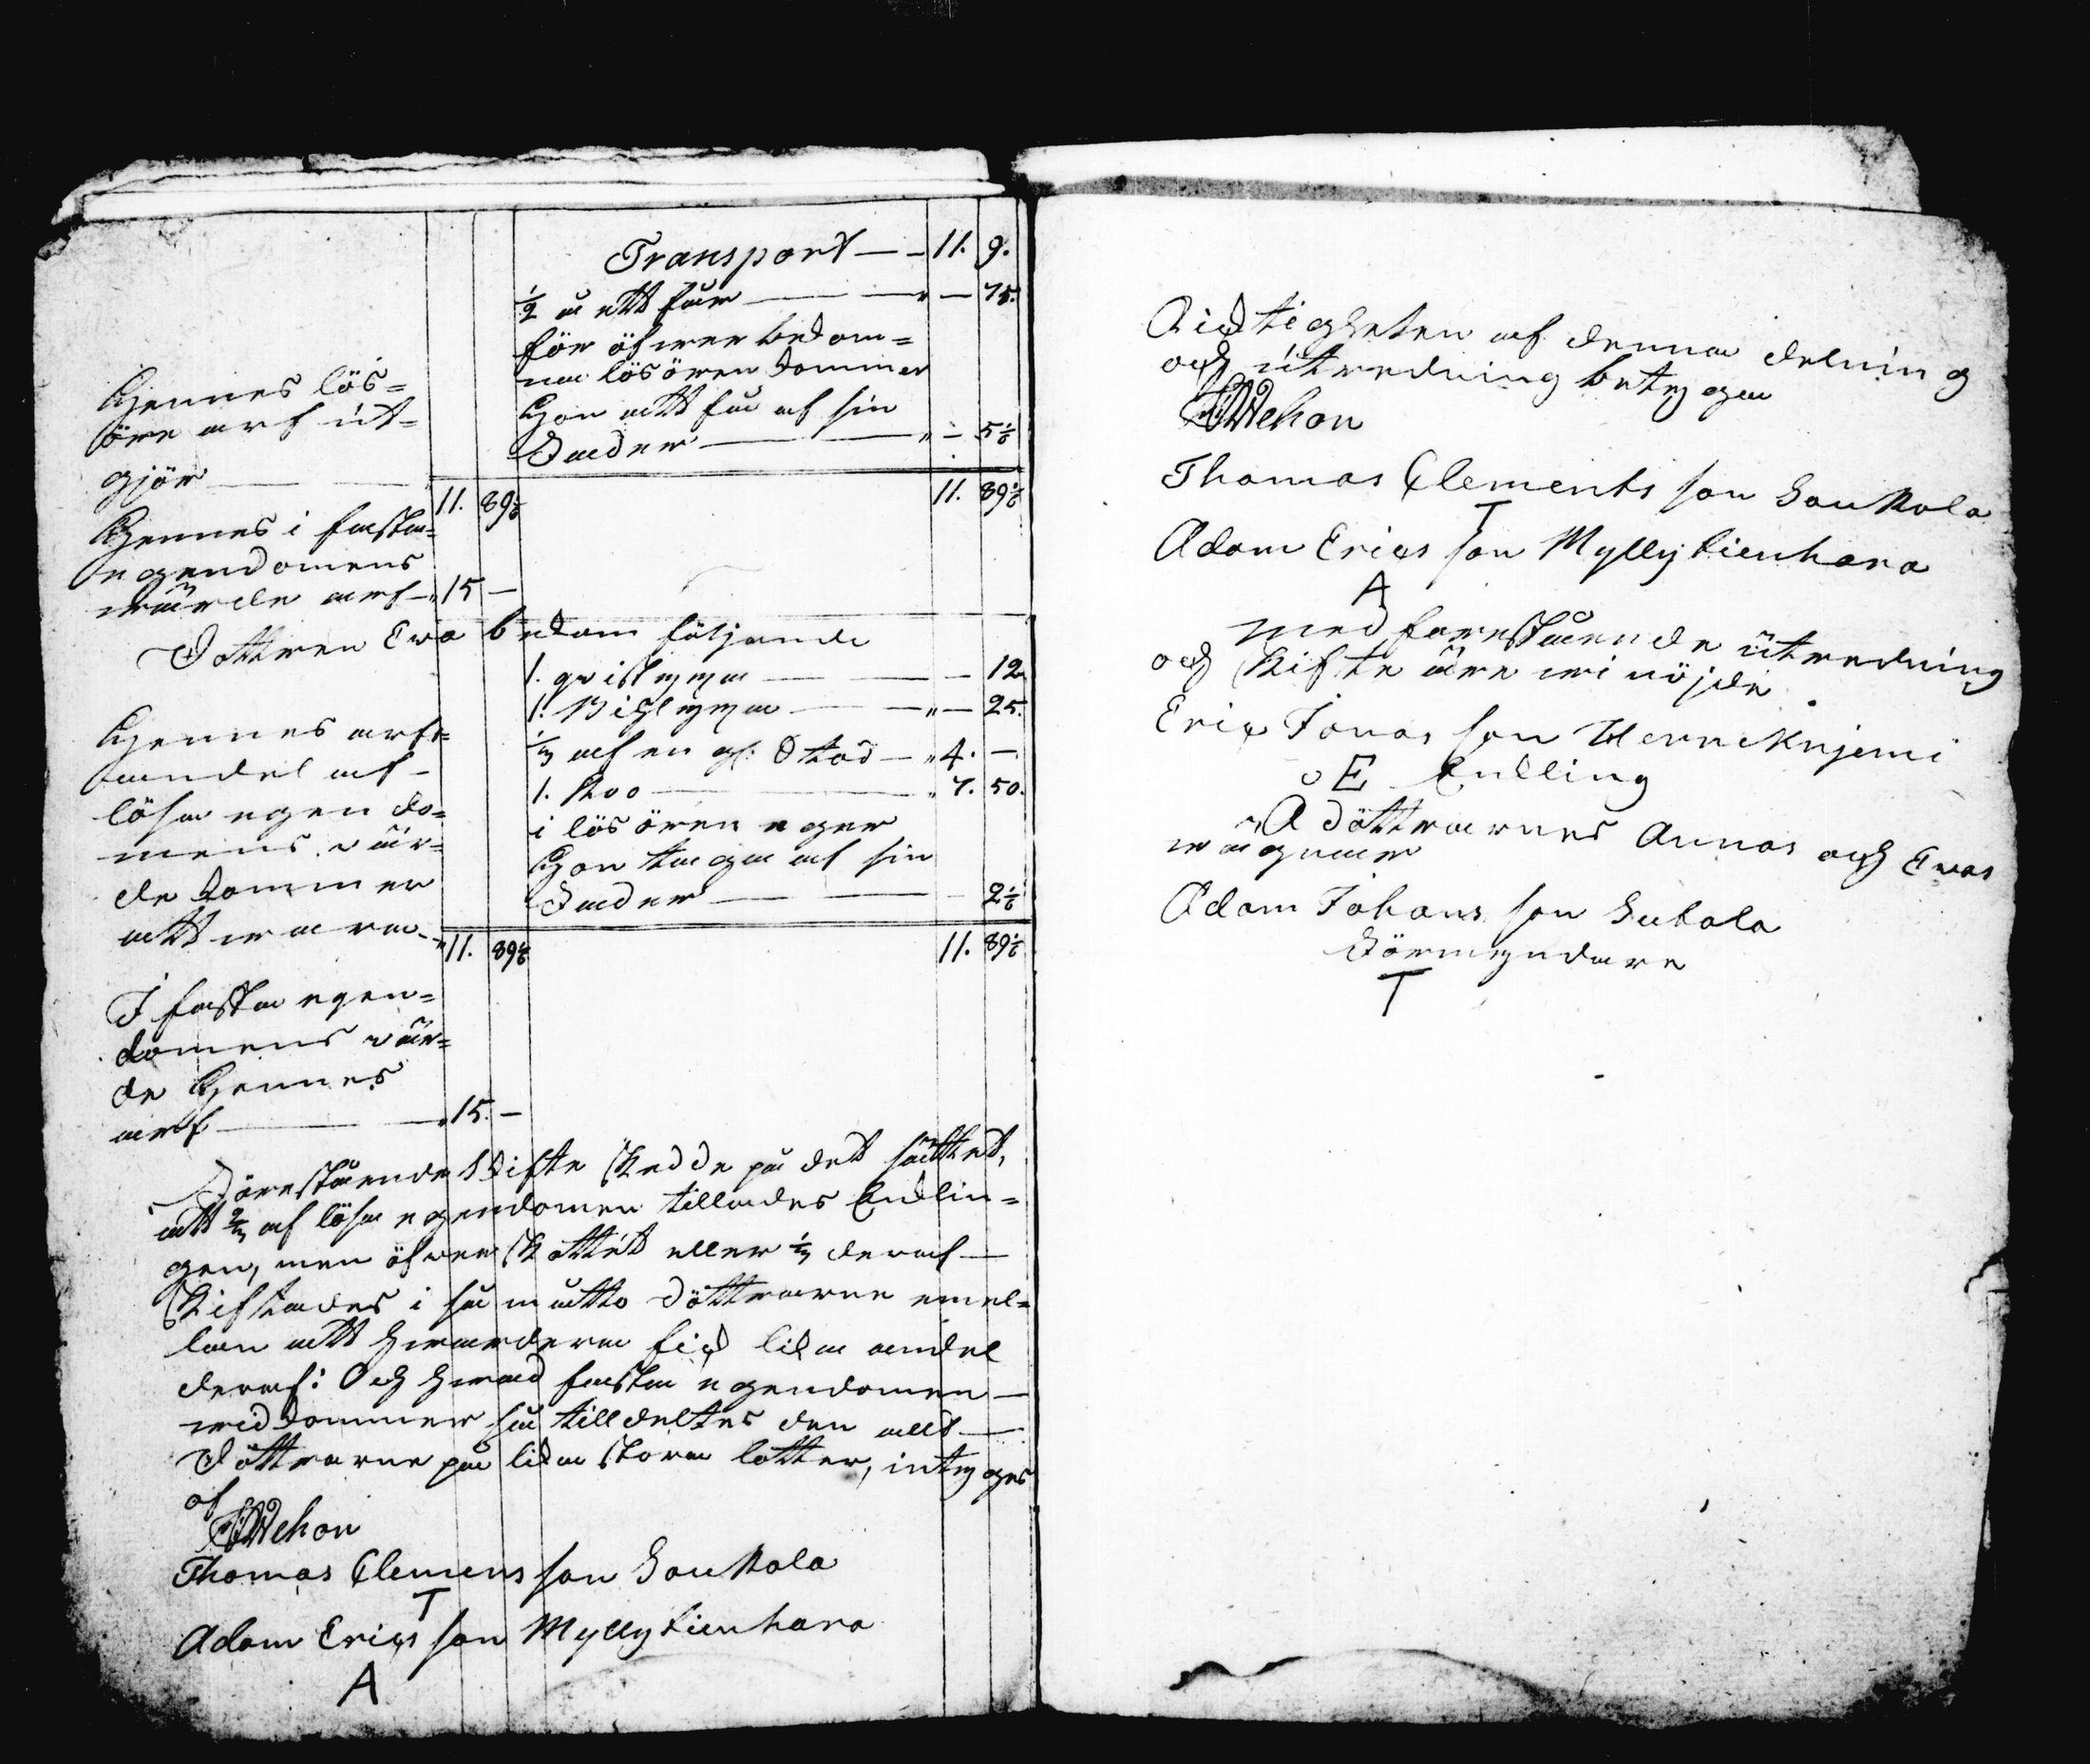 Transport — — 11. 9.
1/2 a ett får — — " — 75.
för öfver bekom=
na lösören kommer
Hon att få af sin
Fader — — " — 5 1/6
Hennes lös=
öre arf ut=
gjör — — 11. 89 1/6 11. 89 1/6
Hennes i fasta
egendomens
värde arf — " 15 —
Dottren Eva bekom följande
1. qvistyxa — — — 12
1. Bihlyxa — — " — 25.
1/3 af en gl. Stod — " 4. —
1. Koo — — " 7. 50.
i lösören eger
Hon taga af sin
Fader — — — 2 1/6
Hennes arfs=
andel af
lösa egendo=
mens vär=
de kommer
att vara — " 11. 89 1/6 11. 89 1/6
I fasta egen=
domens vär=
de Hennes
arf — " 15. —
Förestående skifte skedde på det sättet,
att 2/3 af lösa egendomen tillades Enklin=
gen, men öfverskottet eller 1/3 deraf —
skiftades i så motto döttrarne emel=
lan att hvardera fick lika andel
deraf: Och hvad fasta egendomen —
vidkommer så tilldeltes den allt —
Döttrarne på lika stora lotter, intygas
af
Wehon
Thomas Clemens son Soukkola
T
Adam Erics son Myllykienhara
A
Riktigheten af denna delning
och utredning betygga
Wehon
Thomas Clements son Soukkola
T
Adam Erics son Myllykienhara
A
Med förestående utredning
och skifte äre vi nöjde.
Eric Jonas son Wernikujemi
E Enkling
Å döttrarnes Annas och Evas
vägnar
Adam Johans son Sukola
Förmyndare
T